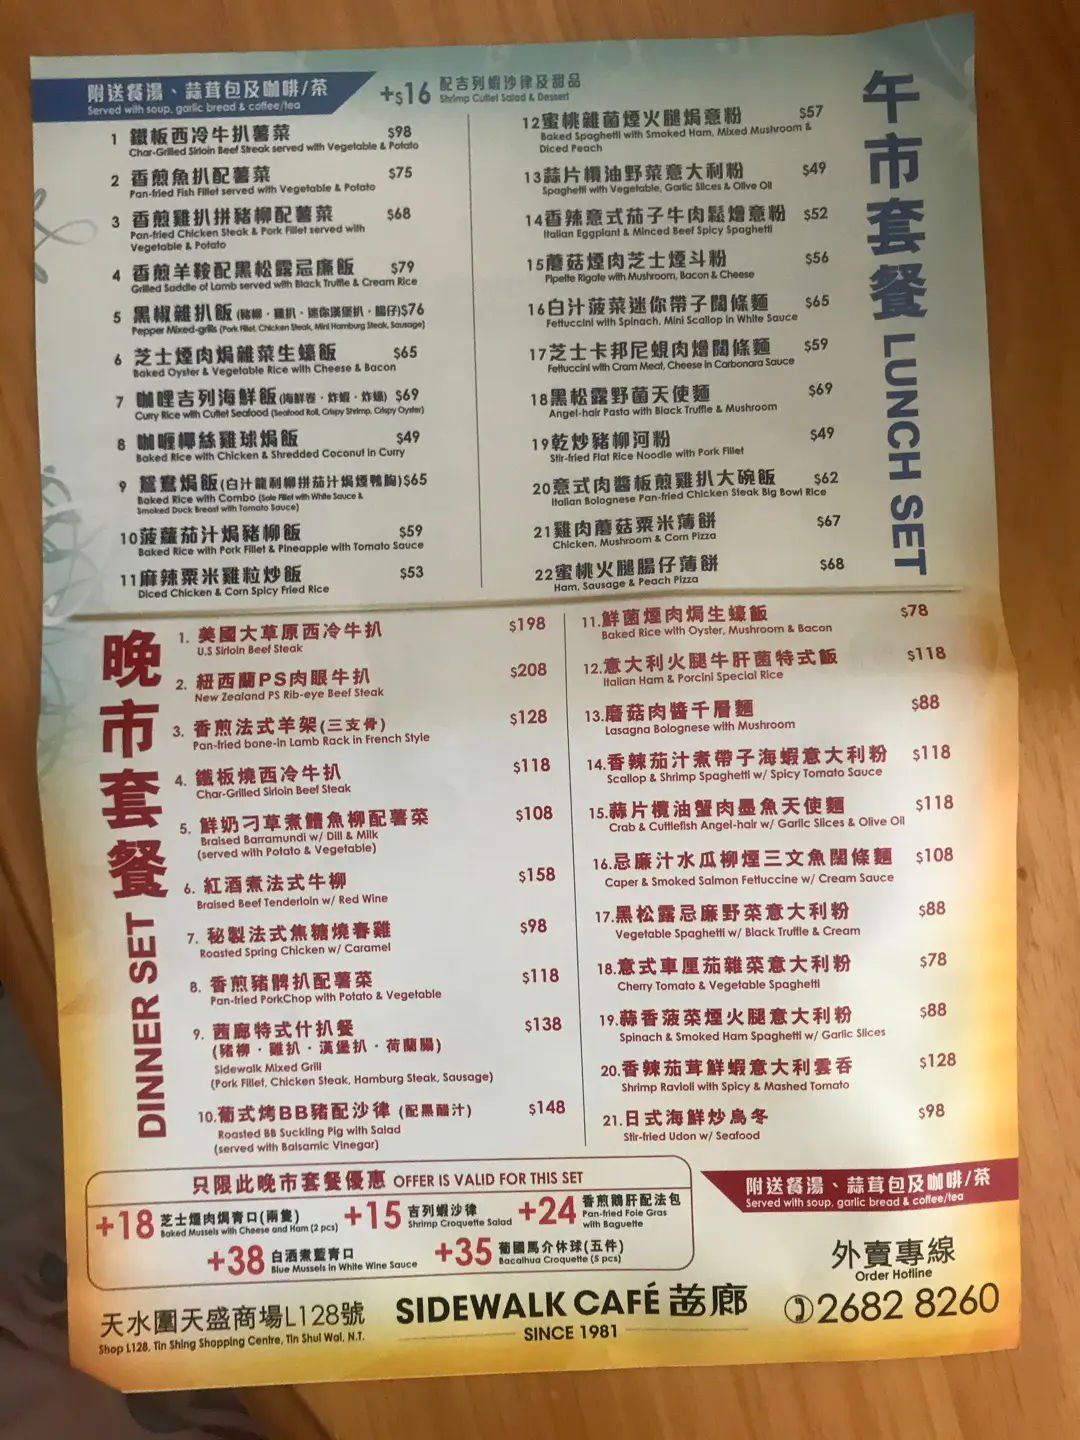 附送餐湯、蒜茸包及咖啡/茶
Served with soup, garlic bread & coffee/tea
+$16 配吉列蝦沙律及甜品
Shrimp Cutlet Salad & Dessert
午市套餐 LUNCH SET
1 鐵板西冷牛扒薯菜 $98
Char-Grilled Sirloin Beef Streak served with Vegetable & Potato
2 香煎魚扒配薯菜 $75
Pan-fried Fish Fillet served with Vegetable & Potato
3 香煎雞扒拼豬柳配薯菜 $68
Pan-fried Chicken Steak & Pork Fillet served with
Vegetable & Potato
4 香煎羊鞍配黑松露忌廉飯 $79
Grilled Saddle of Lamb served with Black Truffle & Cream Rice
5 黑椒雜扒飯(豬柳・雞扒・迷你漢堡扒・腸仔)$76
Pepper Mixed-grills (Pork Fillet, Chicken Steak, Mini Hamburg Steak, Sausage)
6 芝士煙肉焗雜菜生蠔飯 $65
Baked Oyster & Vegetable Rice with Cheese & Bacon
7 咖哩吉列海鮮飯(海鮮卷・炸蝦・炸蠔) $69
Curry Rice with Cutlet Seafood (Seafood Roll, Crispy Shrimp, Crispy Oyster)
8 咖喱椰絲雞球焗飯 $49
Baked Rice with Chicken & Shredded Coconut in Curry
9 鴛鴦焗飯(白汁龍利柳拼茄汁焗煙鴨胸)$65
Baked Rice with Combo (Sole Fillet with White Sauce &
Smoked Duck Breast with Tomato Sauce)
10菠蘿茄汁焗豬柳飯 $59
Baked Rice with Pork Fillet & Pineapple with Tomato Sauce
11麻辣粟米雞粒炒飯 $53
Diced Chicken & Corn Spicy Fried Rice
12蜜桃雜菌煙火腿焗意粉 $57
Baked Spaghetti with Smoked Ham, Mixed Mushroom &
Diced Peach
13蒜片欖油野菜意大利粉 $49
Spaghetti with Vegetable, Garlic Slices & Olive Oil
14香辣意式茄子牛肉鬆燴意粉 $52
Italian Eggplant & Minced Beef Spicy Spaghetti
15蘑菇煙肉芝士煙斗粉 $56
Pipette Rigate with Mushroom, Bacon & Cheese
16白汁菠菜迷你帶子闊條麵 $65
Fettuccini with Spinach, Mini Scallop in White Sauce
17芝士卡邦尼蜆肉燴闊條麵 $59
Fettuccini with Cram Meat, Cheese in Carbonara Sauce
18黑松露野菌天使麵 $69
Angel-hair Pasta with Black Truffle & Mushroom
19乾炒豬柳河粉 $49
Stir-fried Flat Rice Noodle with Pork Fillet
20意式肉醬板煎雞扒大碗飯 $62
Italian Bolognese Pan-fried Chicken Steak Big Bowl Rice
21雞肉蘑菇粟米薄餅 $67
Chicken, Mushroom & Corn Pizza
22蜜桃火腿腸仔薄餅 $68
Ham, Sausage & Peach Pizza
晚市套餐 DINNER SET
1. 美國大草原西冷牛扒 $198
U.S Sirloin Beef Steak
2. 紐西蘭PS肉眼牛扒 $208
New Zealand PS Rib-eye Beef Steak
3. 香煎法式羊架(三支骨) $128
Pan-fried bone-in Lamb Rack in French Style
4. 鐵板燒西冷牛扒 $118
Char-Grilled Sirloin Beef Steak
5. 鮮奶刁草煮鱈魚柳配薯菜 $108
Braised Barramundi w/ Dill & Milk
(served with Potato & Vegetable)
6. 紅酒煮法式牛柳 $158
Braised Beef Tenderloin w/ Red Wine
7. 秘製法式焦糖燒春雞 $98
Roasted Spring Chicken w/ Caramel
8. 香煎豬髀扒配薯菜 $118
Pan-fried PorkChop with Potato & Vegetable
9. 茜廊特式什扒餐 $138
(豬柳・雞扒・漢堡扒・荷蘭腸)
Sidewalk Mixed Grill
(Pork Fillet, Chicken Steak, Hamburg Steak, Sausage)
10.葡式烤BB豬配沙律 (配黑醋汁) $148
Roasted BB Suckling Pig with Salad
(served with Balsamic Vinegar)
11.鮮菌煙肉焗生蠔飯 $78
Baked Rice with Oyster, Mushroom & Bacon
12.意大利火腿牛肝菌特式飯 $118
Italian Ham & Porcini Special Rice
13.磨菇肉醬千層麵 $88
Lasagna Bolognese with Mushroom
14.香辣茄汁煮帶子海蝦意大利粉 $118
Scallop & Shrimp Spaghetti w/ Spicy Tomato Sauce
15.蒜片欖油蟹肉墨魚天使麵 $118
Crab & Cuttlefish Angel-hair w/ Garlic Slices & Olive Oil
16.忌廉汁水瓜柳煙三文魚闊條麵 $108
Caper & Smoked Salmon Fettuccine w/ Cream Sauce
17.黑松露忌廉野菜意大利粉 $88
Vegetable Spaghetti w/ Black Truffle & Cream
18.意式車厘茄雜菜意大利粉 $78
Cherry Tomato & Vegetable Spaghetti
19.蒜香菠菜煙火腿意大利粉 $88
Spinach & Smoked Ham Spaghetti w/ Garlic Slices
20.香辣茄茸鮮蝦意大利雲吞 $128
Shrimp Ravioli with Spicy & Mashed Tomato
21.日式海鮮炒烏冬 $98
Stir-fried Udon w/ Seafood
只限此晚市套餐優惠 OFFER IS VALID FOR THIS SET
+18 芝士煙肉焗青口(兩隻)
Baked Mussels with Cheese and Ham (2 pcs)
+15 吉列蝦沙律
Shrimp Croquette Salad
+24 香煎鵝肝配法包
Pan-fried Foie Gras
with Baguette
+38 白酒煮藍青口
Blue Mussels in White Wine Sauce
+35 葡國馬介休球(五件)
Bacalhua Croquette (5 pcs)
附送餐湯、蒜茸包及咖啡/茶
Served with soup, garlic bread & coffee/tea
天水圍天盛商場L128號
Shop L128, Tin Shing Shopping Centre, Tin Shui Wai, N.T.
SIDEWALK CAFÉ 茜廊
SINCE 1981
外賣專線
Order Hotline
2682 8260